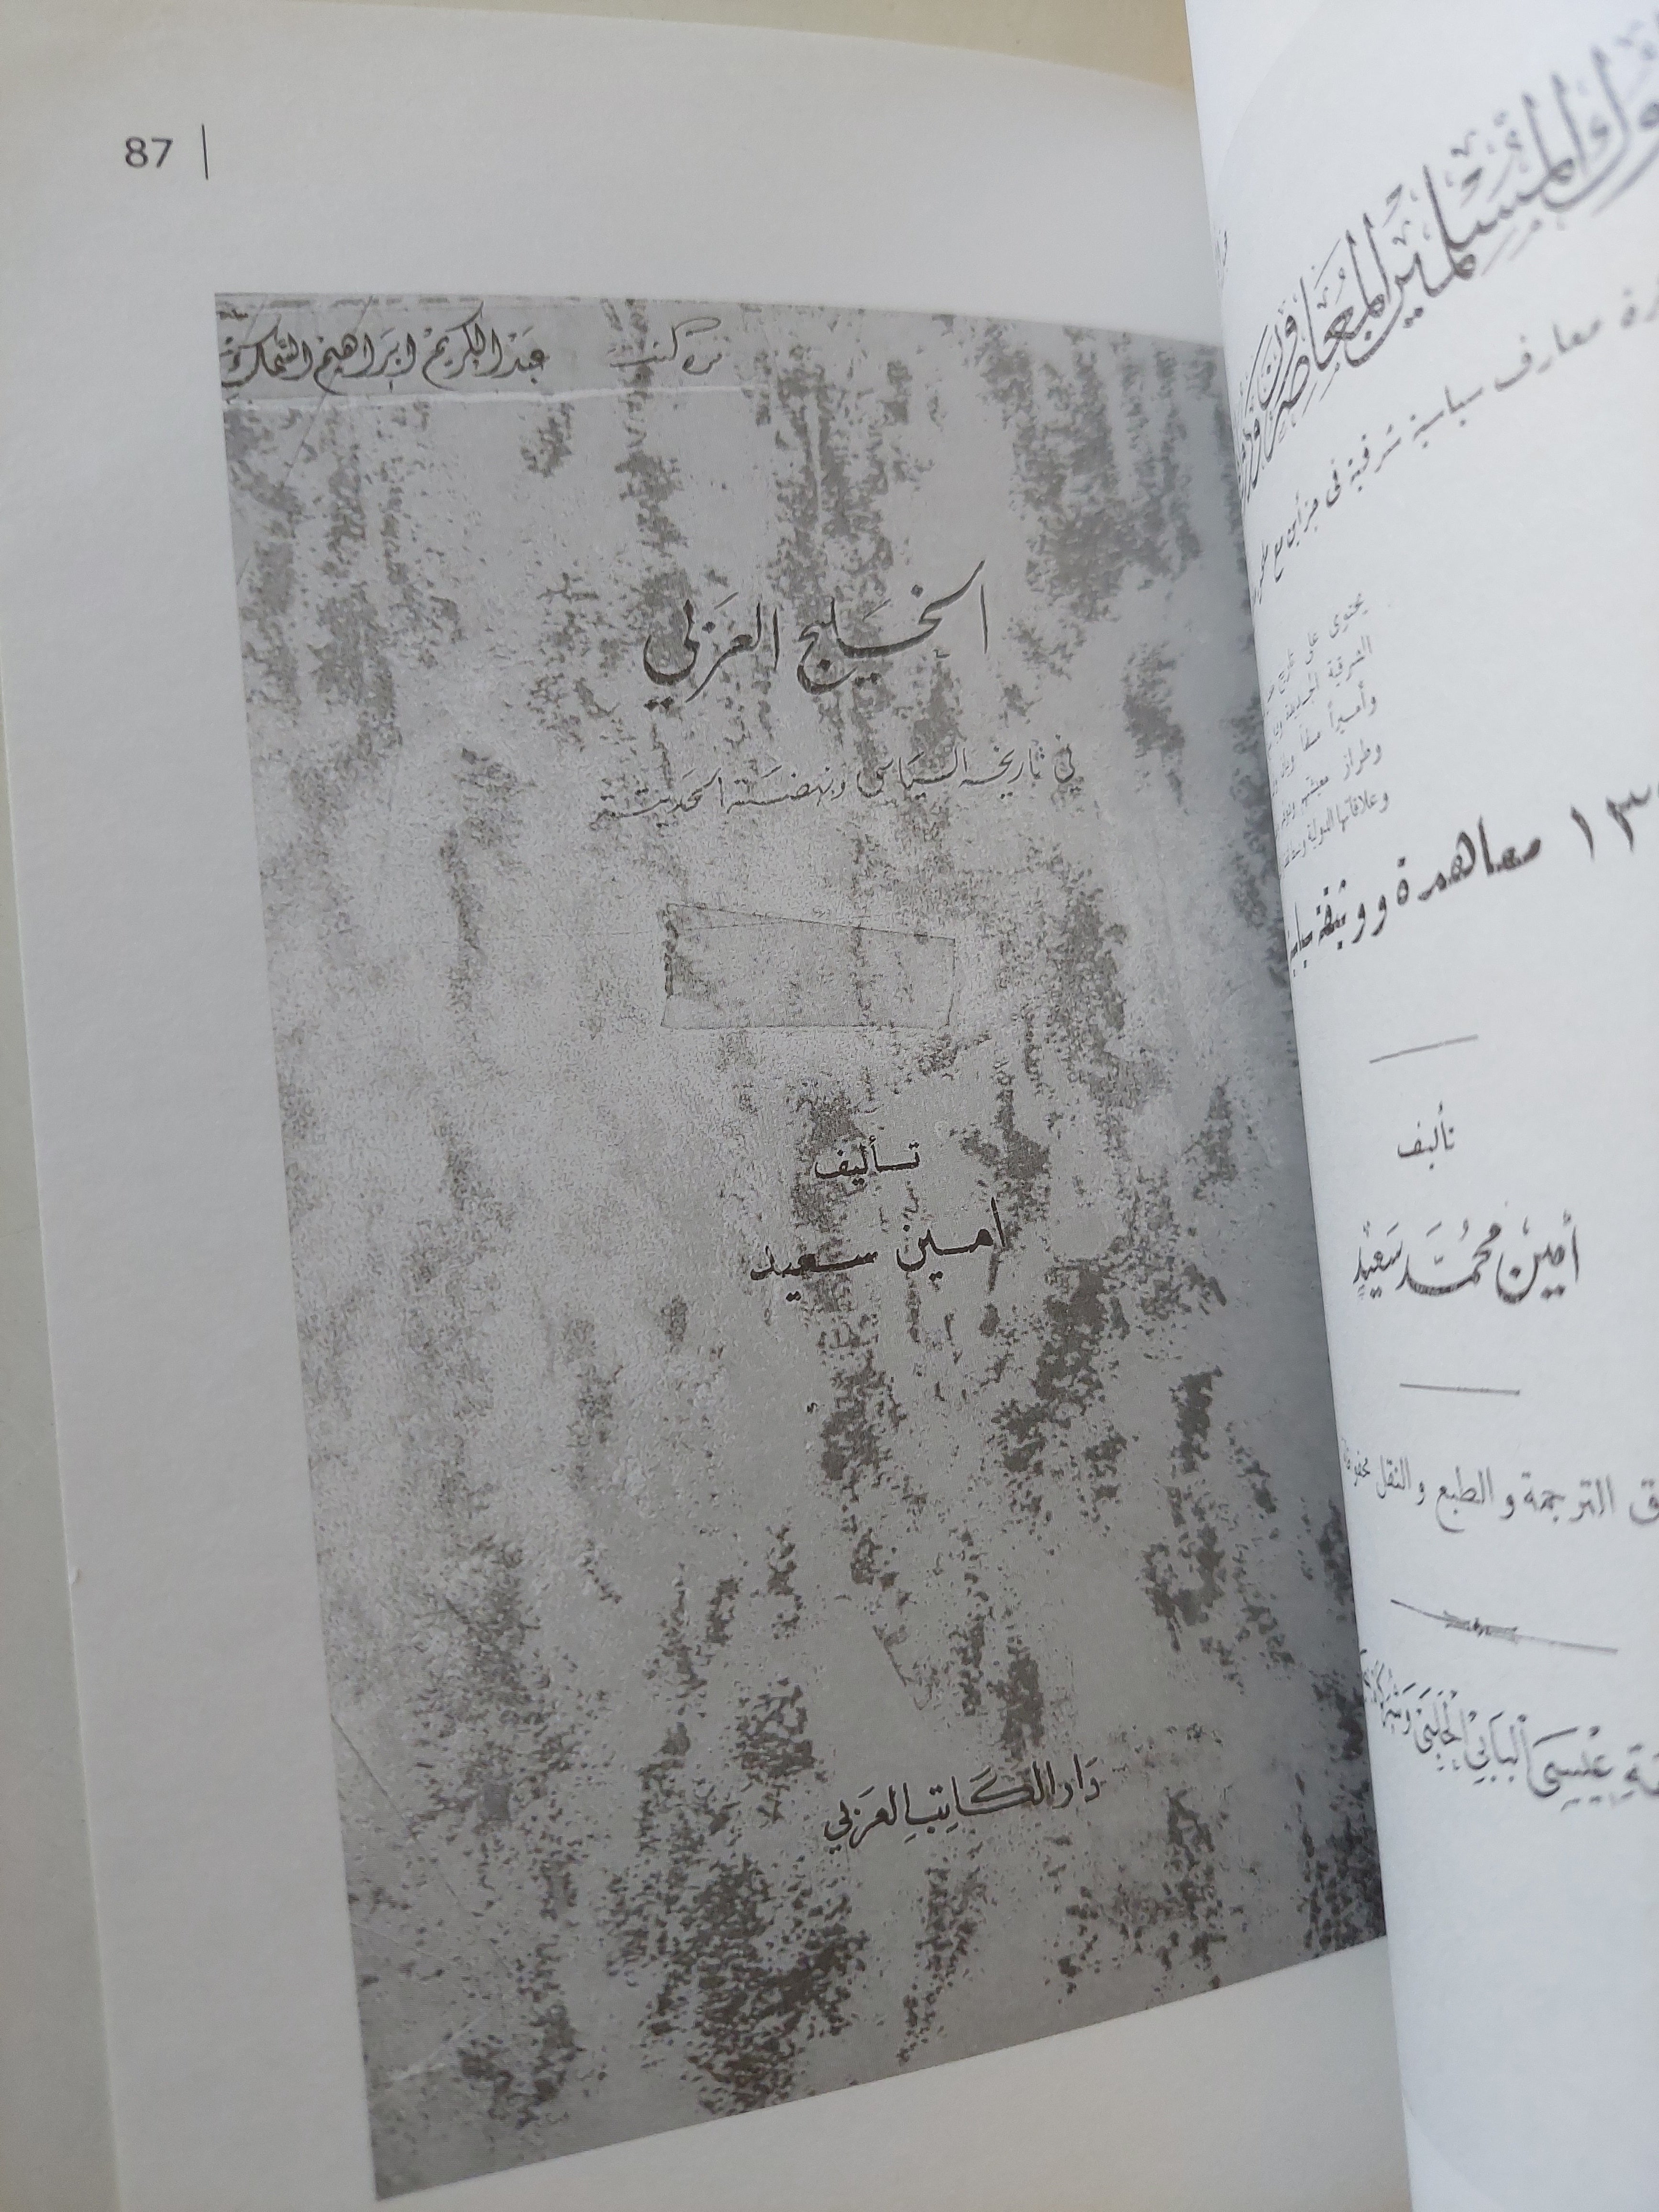 87
من كتب عبد الكريم ابراهيم السمك
الخليج العربي
في تاريخه السياسي ونهضته الحديثة
تأليف
أمين سعيد
دار الكاتب العربي
المسلمين المعاصرون
معارف سياسية شرقية في جزأين مع
يحتوي على تاريخ
الشرقية الحديثة
وأميراً
وطراز معيشتهم
وعلاقاتها الدولية
معاهدة ووثيقة
تأليف
أمين محمد سعيد
الترجمة والطبع والنقل محفوظة
عيسى البابي الحلبي وشركاه